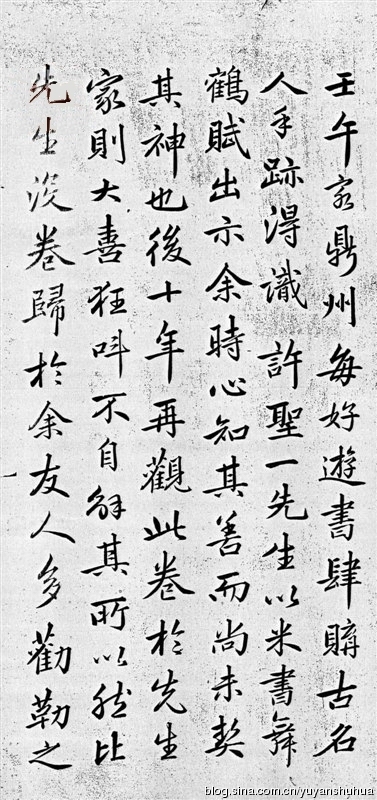 壬午客鼎州每好遊書肆購古名
人手跡得識許聖一先生以米書舞
鶴賦出示余時心知其善而尚未契
其神也後十年再觀此卷於先生
家則大喜狂叫不自解其所以然比
先生歿卷歸於余友人多勸勒之
blog.sina.com.cn/yuyanshuhua